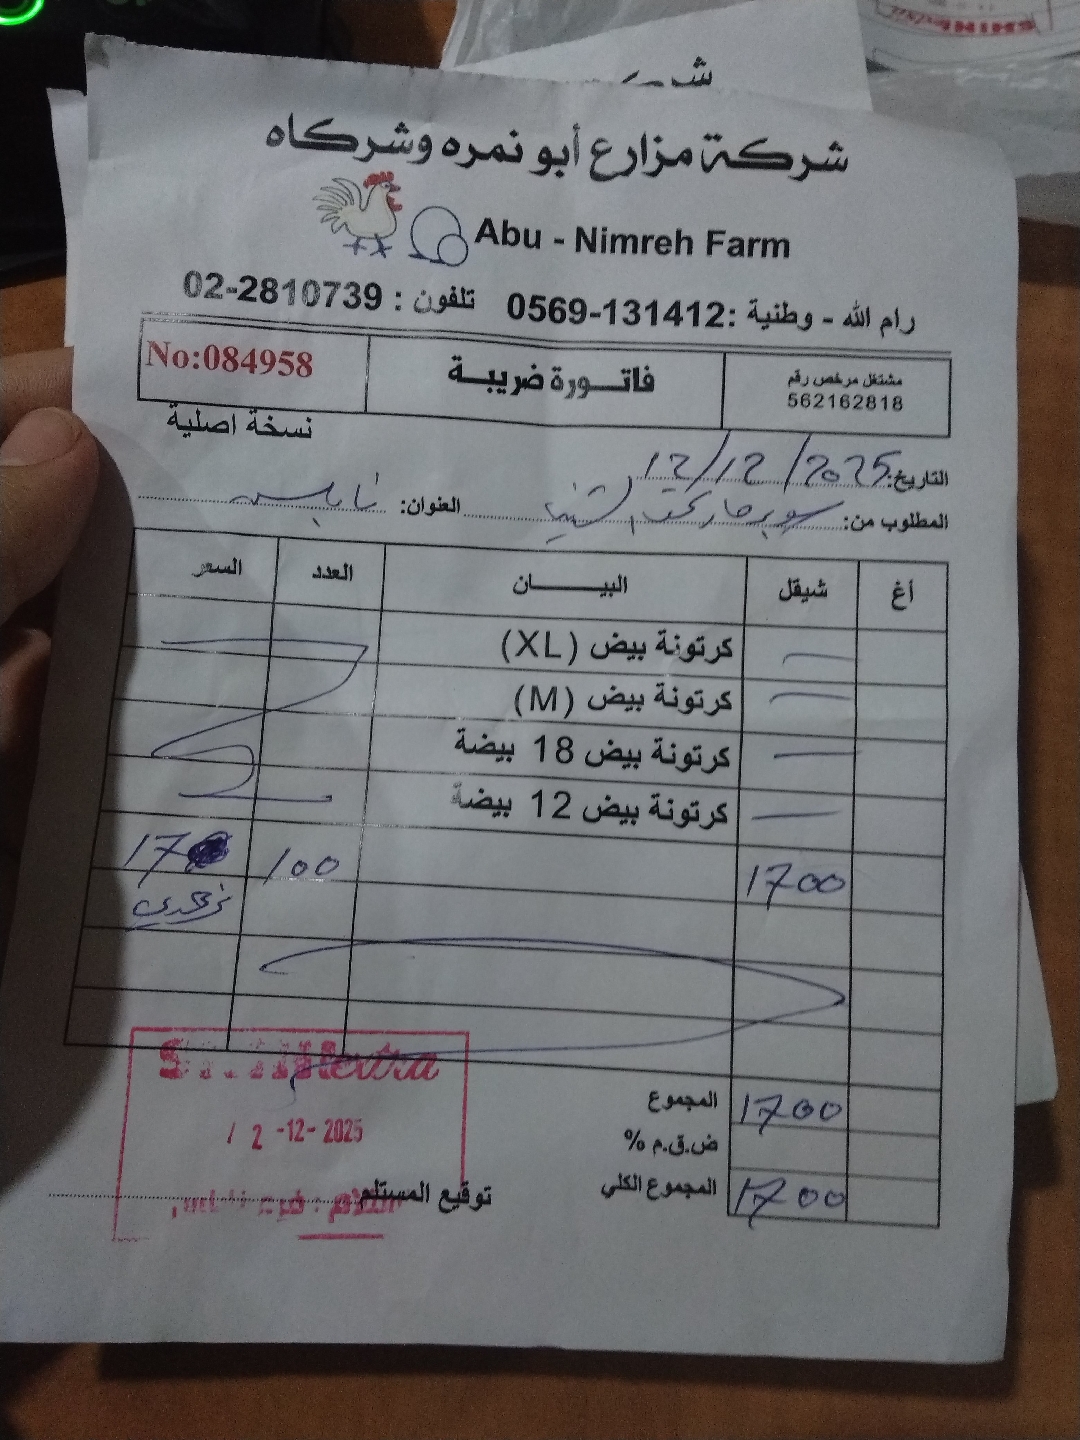 شركة مزارع أبو نمره وشركاه
Abu - Nimreh Farm
رام الله - وطنية :0569-131412 تلفون : 02-2810739
مشتغل مرخص رقم
562162818
فاتـــورة ضريبـــة
No:084958
نسخة اصلية
التاريخ: 12/12/2025
المطلوب من: سوبر ماركت العنوان: نابلس
أغ شيقل البيـــــــان العدد السعر
كرتونة بيض (XL)
كرتونة بيض (M)
كرتونة بيض 18 بيضة
كرتونة بيض 12 بيضة
1700 100 17
المجموع 1700
ض.ق.م %
المجموع الكلي 1700
extra
12-12-2025
توقيع المستلم
SHINI extra